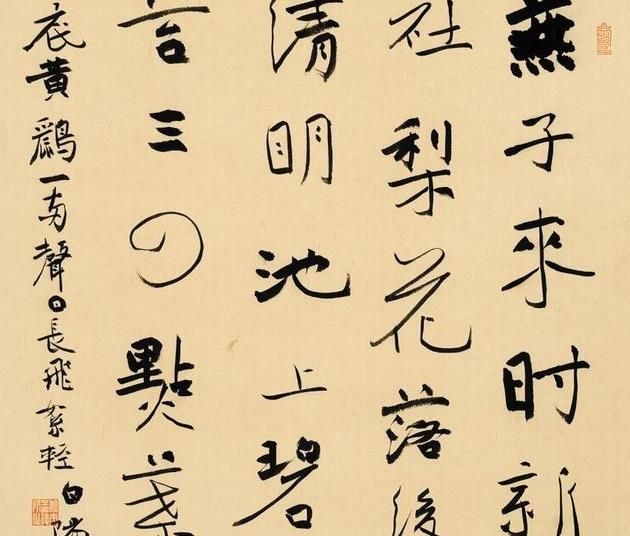 燕子來时新
社梨花落後
清明池上碧
苔三四點葉
底黄鸝一两聲日長飛絮輕白陽